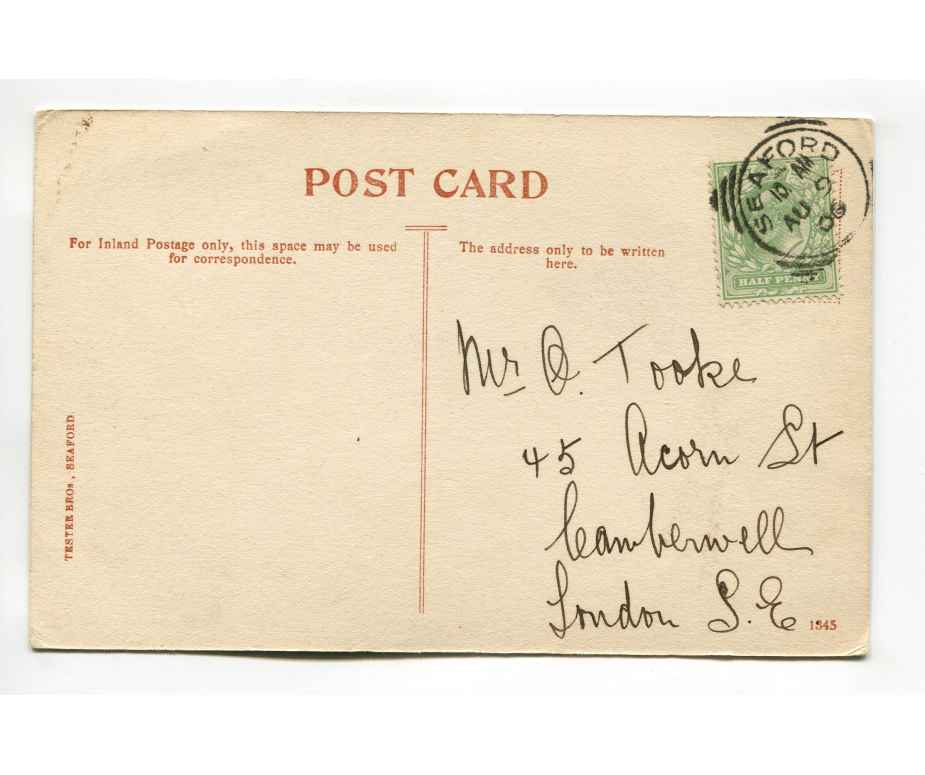 POST CARD
For Inland Postage only, this space may be used
for correspondence.
The address only to be written
here.
SEAFORD
10 AM
AU 2
06
HALF PENNY
Mr O. Tooke
45 Acorn St
Camberwell
London S.E
TESTER BROS, SEAFORD
1345